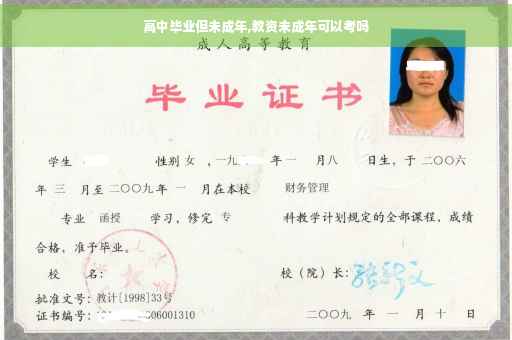 高中毕业但未成年,教资未成年可以考吗
成人高等教育
毕业证书
学生 性别 女 ，一九 年 一 月八 日生，于 二〇〇六
年 三 月至 二〇〇九 年 一 月在本校 财务管理
专业 函授 学习，修完 专 科教学计划规定的全部课程，成绩
合格，准予毕业。
校 名： 校（院）长：
批准文号：教计[1998]33号
证书编号： 06001310 二〇〇九 年 一 月 十 日